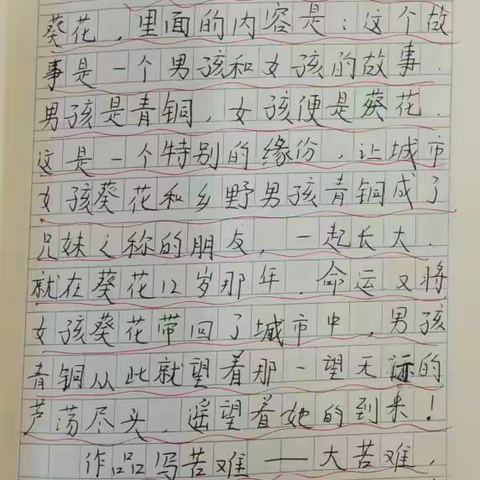 葵花，里面的内容是：这个故
事是一个男孩和女孩的故事.
男孩是青铜，女孩便是葵花.
这是一个特别的缘份，让城市
女孩葵花和乡野男孩青铜成了
兄妹之称的朋友，一起长大.
就在葵花12岁那年.命运又将
女孩葵花带回了城市中，男孩
青铜从此就望着那一望无际的
芦荡尽头，遥望着她的到来！
作品写苦难——大苦难，